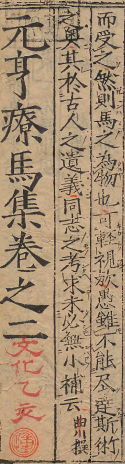 而受之然則馬之為物也可輕視歟愚雖不能及達斯術
之奧其於古人之遺義同志之考求未必無小補云
元亨療馬集卷之二
文化乙亥